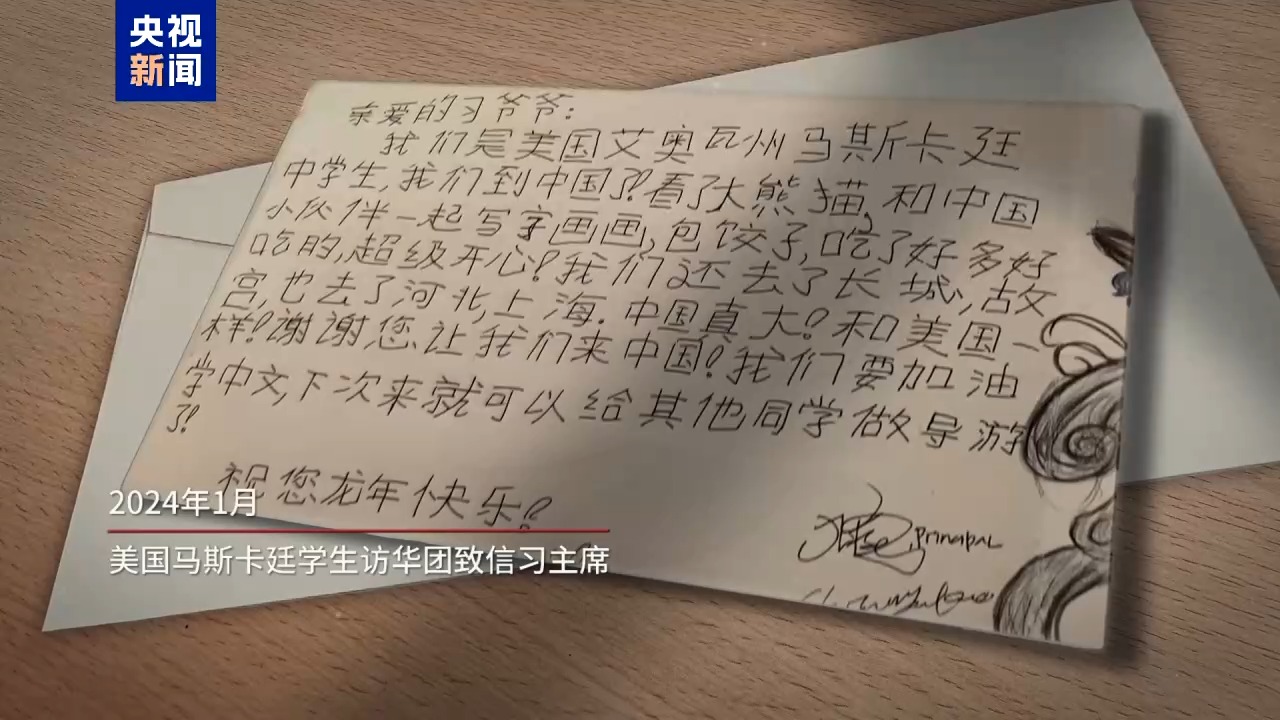 央视
新闻
亲爱的习爷爷:
我们是美国艾奥瓦州马斯卡廷
中学生,我们到中国了!看了大熊猫,和中国
小伙伴一起写字画画,包饺子,吃了好多好
吃的,超级开心!我们还去了长城,故
宫,也去了河北,上海.中国真大!和美国一
样!谢谢您让我们来中国!我们要加油
学中文,下次来就可以给其他同学做导游
了!
祝您龙年快乐!
principal
2024年1月
美国马斯卡廷学生访华团致信习主席